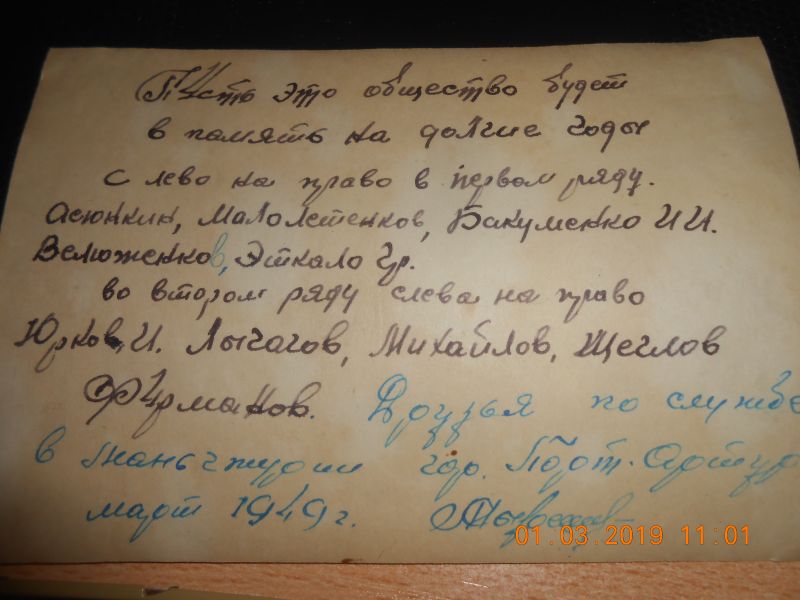 Пусть это общество будет
в память на долгие годы
с лево на право в первом ряду.
Асюнкин, Малолетенков, Бакуменко И И.
Велюженков, Эткало Гр.
во втором ряду слева на право
Юрков, И. Лычагов, Михайлов, Щеглов
Фурманов. Друзья по службе
в Маньчжурии гор. Порт-Артур
март 1949 г.
01.03.2019 11:01